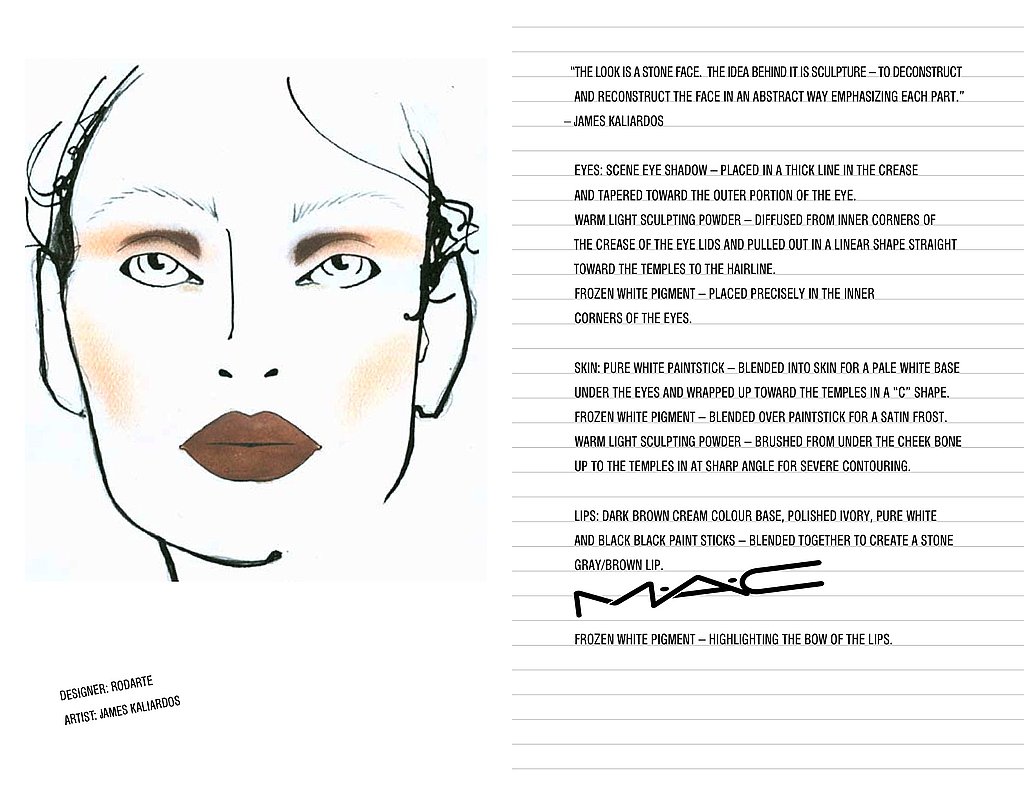 "THE LOOK IS A STONE FACE. THE IDEA BEHIND IT IS SCULPTURE – TO DECONSTRUCT
AND RECONSTRUCT THE FACE IN AN ABSTRACT WAY EMPHASIZING EACH PART."
– JAMES KALIARDOS
EYES: SCENE EYE SHADOW – PLACED IN A THICK LINE IN THE CREASE
AND TAPERED TOWARD THE OUTER PORTION OF THE EYE.
WARM LIGHT SCULPTING POWDER – DIFFUSED FROM INNER CORNERS OF
THE CREASE OF THE EYE LIDS AND PULLED OUT IN A LINEAR SHAPE STRAIGHT
TOWARD THE TEMPLES TO THE HAIRLINE.
FROZEN WHITE PIGMENT – PLACED PRECISELY IN THE INNER
CORNERS OF THE EYES.
SKIN: PURE WHITE PAINTSTICK – BLENDED INTO SKIN FOR A PALE WHITE BASE
UNDER THE EYES AND WRAPPED UP TOWARD THE TEMPLES IN A "C" SHAPE.
FROZEN WHITE PIGMENT – BLENDED OVER PAINTSTICK FOR A SATIN FROST.
WARM LIGHT SCULPTING POWDER – BRUSHED FROM UNDER THE CHEEK BONE
UP TO THE TEMPLES IN AT SHARP ANGLE FOR SEVERE CONTOURING.
LIPS: DARK BROWN CREAM COLOUR BASE, POLISHED IVORY, PURE WHITE
AND BLACK BLACK PAINT STICKS – BLENDED TOGETHER TO CREATE A STONE
GRAY/BROWN LIP.
M·A·C
FROZEN WHITE PIGMENT – HIGHLIGHTING THE BOW OF THE LIPS.
DESIGNER: RODARTE
ARTIST: JAMES KALIARDOS